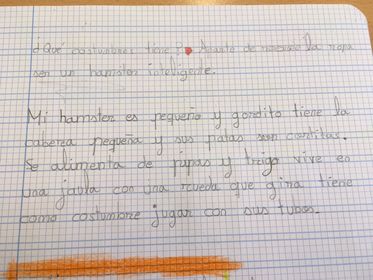 ¿Qué costumbres tiene? Aparte de la ropa
ser un hamster inteligente.
Mi hamster es pequeño y gordito tiene la
cabeza pequeña y sus patas son cortitas.
Se alimenta de pipas y trigo vive en
una jaula con una rueda que gira tiene
como costumbre jugar con sus tubos.